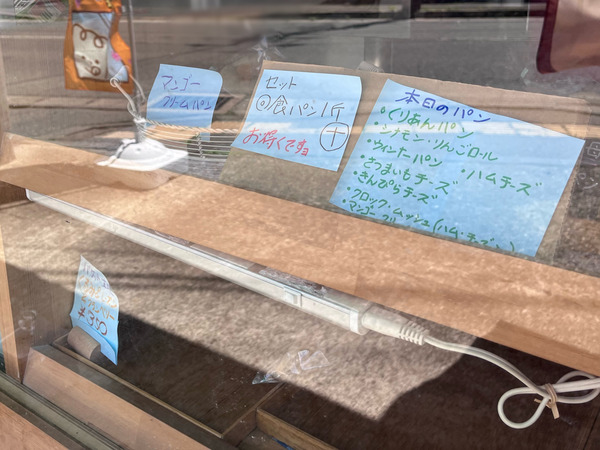 マンゴー
クリームパン
セット
@食パン1斤
十
お得くですョ
本日のパン
・くりあんパン
・シナモン・りんごロール
・ウィンナーパン ・ハムチーズ
・さつまいもチーズ
・きんぴらチーズ
・クロック・ムッシュ(ハム・チーズ
・マンゴー